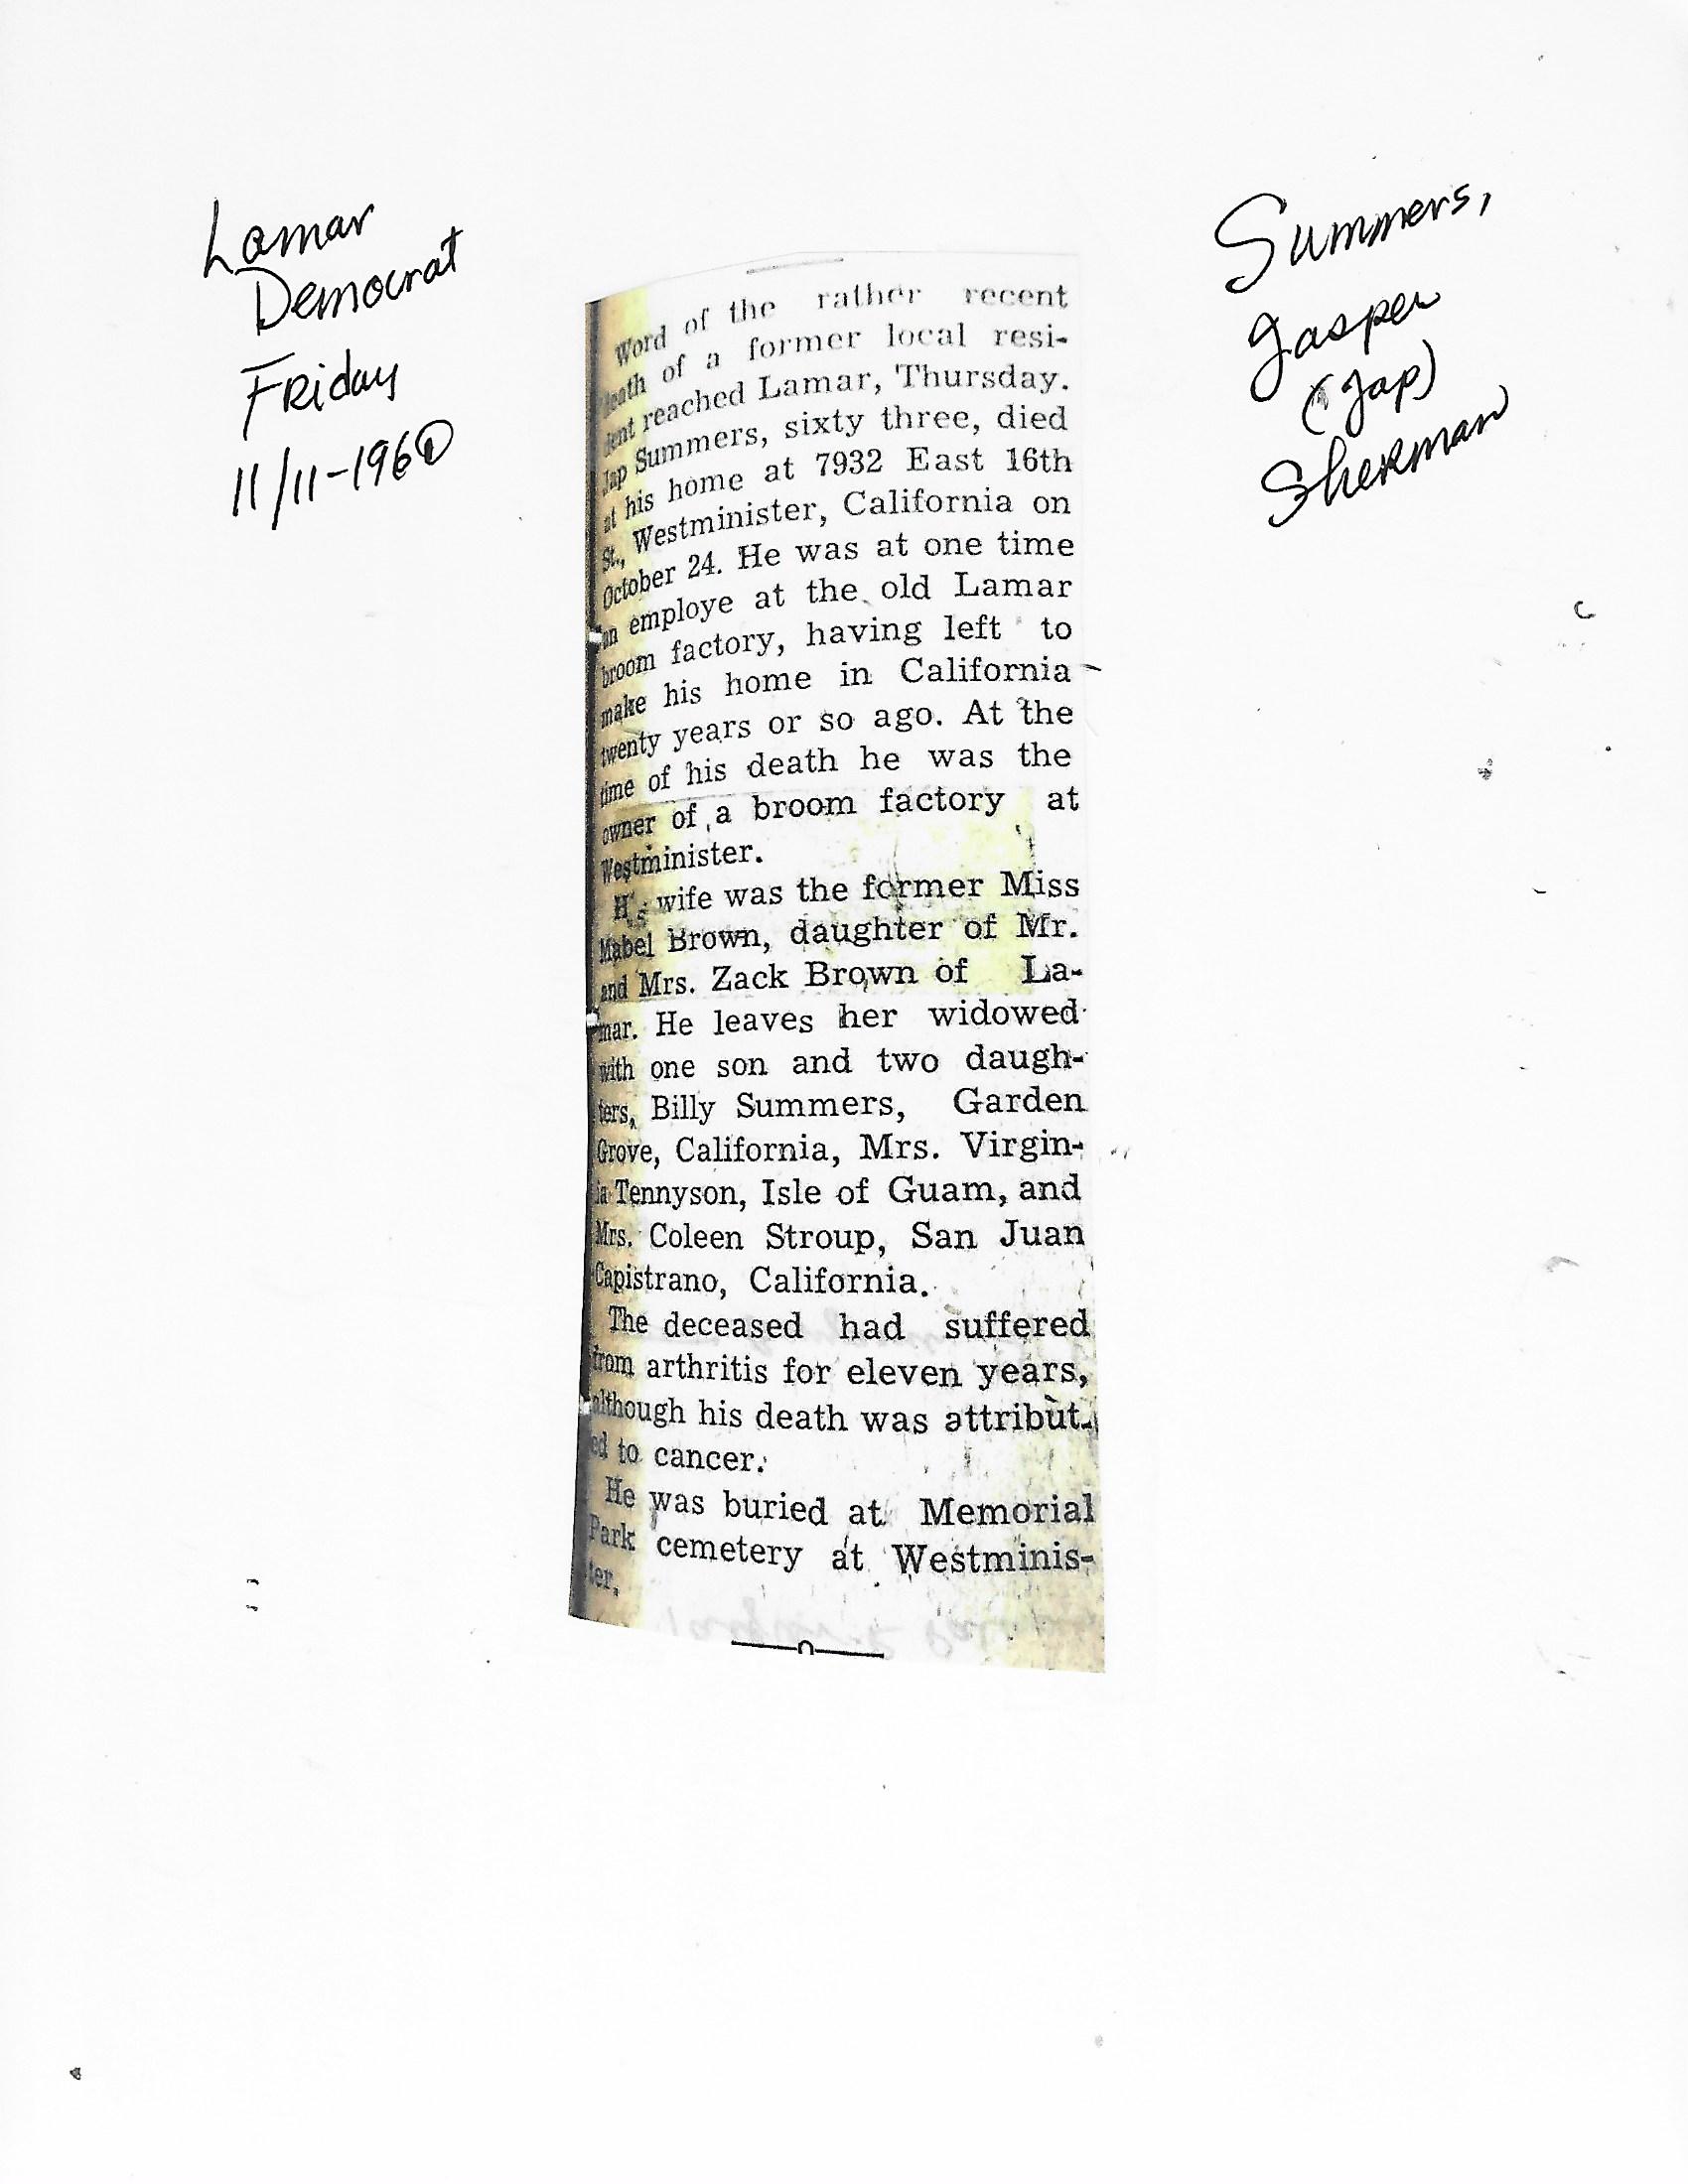 Lamar
Democrat
Friday
11/11-1960
Summers,
Jasper
(Jap)
Sherman
Word of the rather recent
death of a former local resi-
dent reached Lamar, Thursday.
Jap Summers, sixty three, died
at his home at 7932 East 16th
St., Westminister, California on
October 24. He was at one time
an employe at the old Lamar
broom factory, having left to
make his home in California
twenty years or so ago. At the
time of his death he was the
owner of a broom factory at
Westminister.
His wife was the former Miss
Mabel Brown, daughter of Mr.
and Mrs. Zack Brown of La-
mar. He leaves her widowed
with one son and two daugh-
ters, Billy Summers, Garden
Grove, California, Mrs. Virgin-
ia Tennyson, Isle of Guam, and
Mrs. Coleen Stroup, San Juan
Capistrano, California.
The deceased had suffered
from arthritis for eleven years,
although his death was attribut-
ed to cancer.
He was buried at Memorial
Park cemetery at Westminis-
ter.